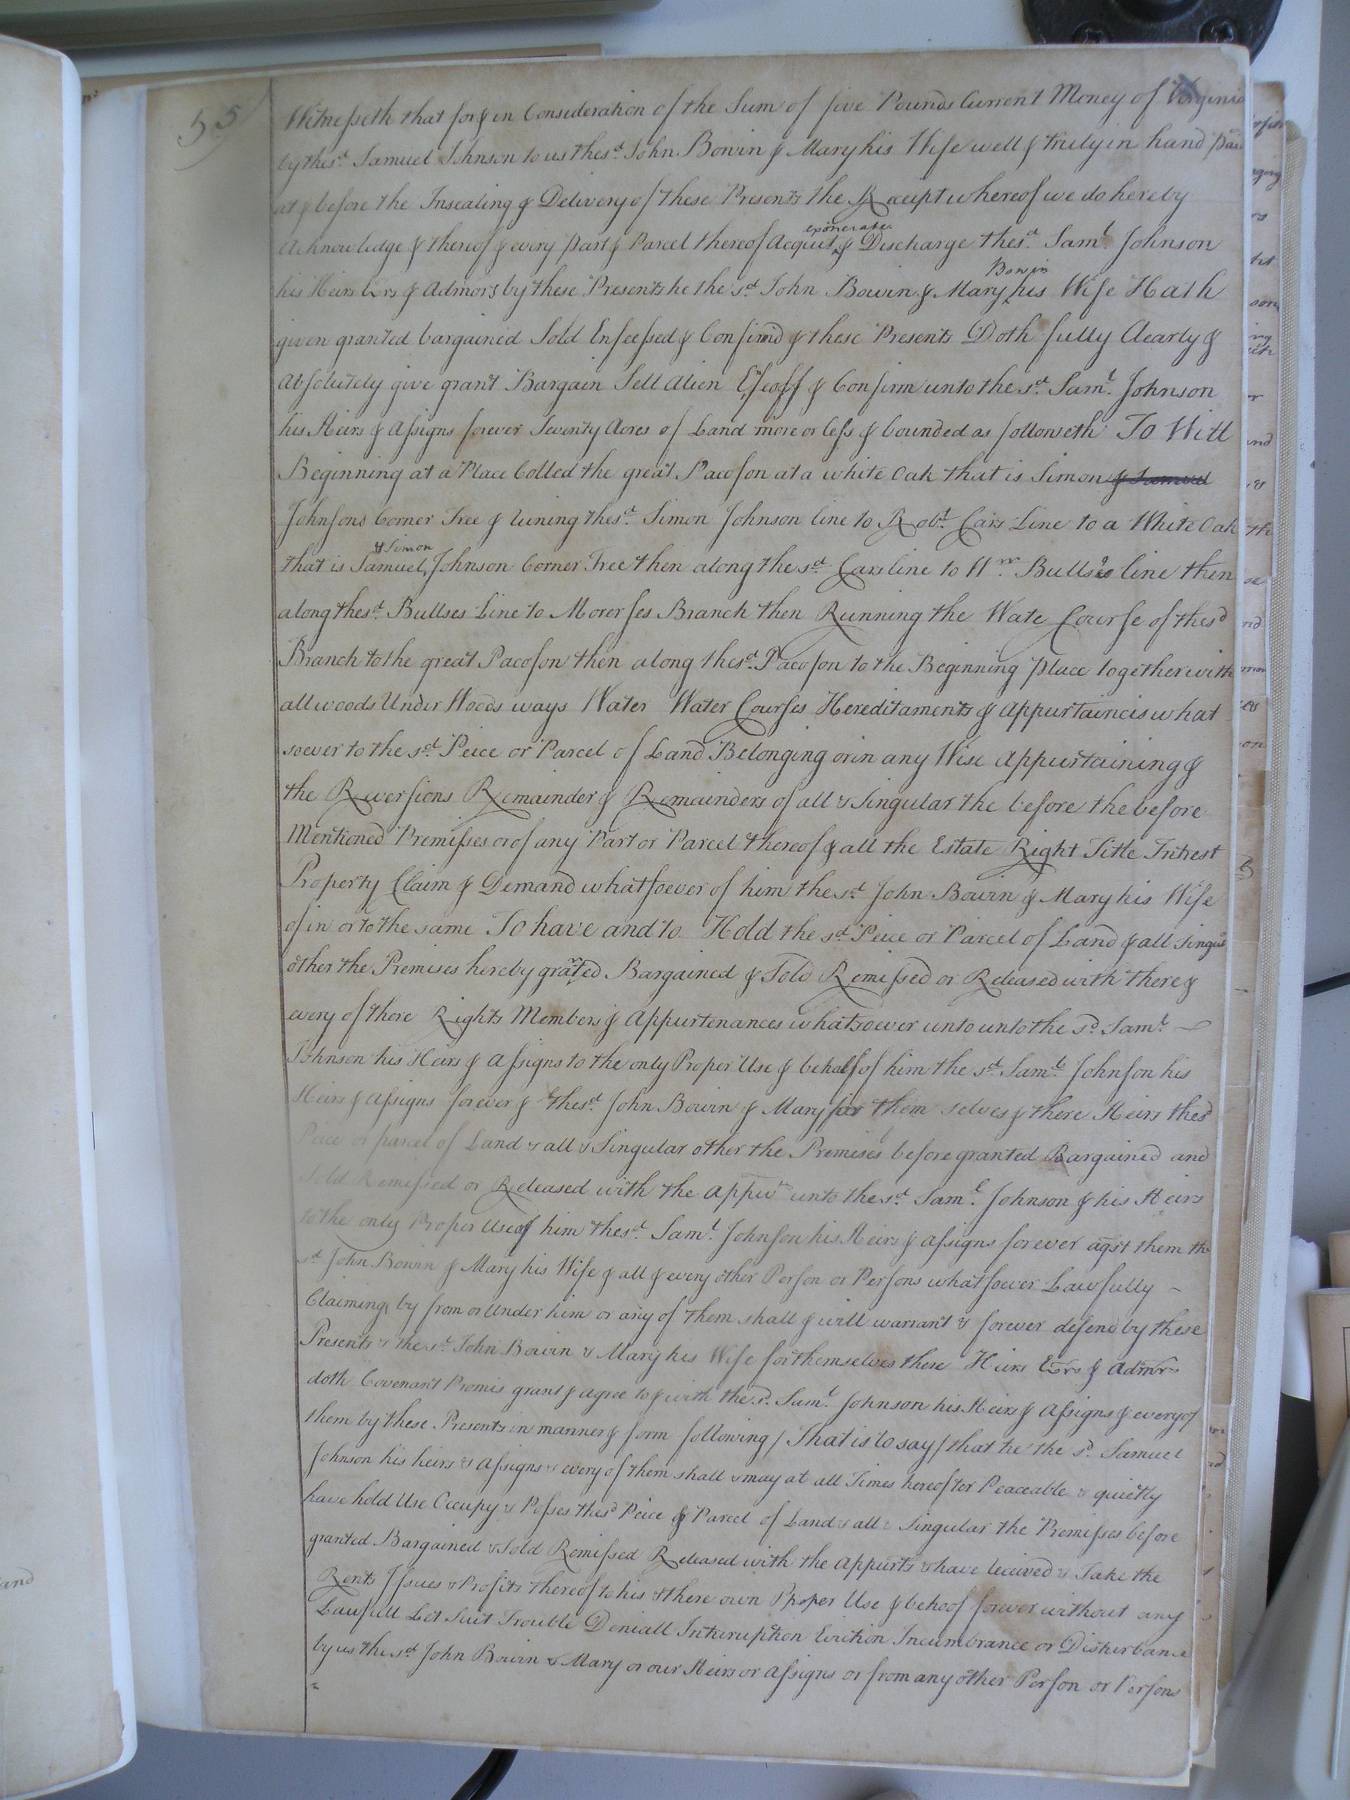 55
Witnesseth that for & in Consideration of the Sum of five Pounds Current Money of Virginia
by the sd. Samuel Johnson to us the sd. John Bowin & Mary his Wife well & truly in hand
at & before the Insealing & Delivery of these Presents the Receipt whereof we do hereby
exonerate
Acknowledge & thereof & every part & Parcel thereof Acquit & Discharge the sd. Saml. Johnson
Bowin
his Heirs Exrs & Admors by these Presents he the sd. John Bowin & Mary his Wife Hath
given granted bargained Sold Enfeefsed & Confirmd & these Presents Doth fully Clearly &
Absolutely give grant Bargain Sell Alien Efeoff & Confirm unto the sd. Saml. Johnson
his Heirs & Assigns forever Seventy Acres of Land more or less & bounded as followseth To Witt
Beginning at a Place Colled the great Pacoson at a white Oak that is Simon & Samuel
Johnsons Corner Tree & runing the sd. Simon Johnson line to Robt. Cars Line to a White Oak
& Simon
that is Samuel Johnson Corner Tree then along the sd. Cars line to Wm. Bullses line then
along the sd. Bullses Line to Morerses Branch then Running the Wate Course of the sd
Branch to the great Pacoson then along the sd. Pacoson to the Beginning place together with
all woods Under Woods ways Water Water Courses Hereditaments & appurtainces what
soever to the sd. Peice or Parcel of Land Belonging or in any Wise appurtaining &
the Reversions Remainder & Remainders of all & Singular the before the before
Mentioned Premisses or of any Part or Parcel thereof & all the Estate Right Title Intrest
Property Claim & Demand whatsoever of him the sd. John Bowin & Mary his Wife
of in or to the same To have and to Hold the sd. Peice or Parcel of Land & all
other the Premises hereby grated Bargained & Sold Remissed or Released with there &
every of there Rights Members & Appurtenances whatsoever unto unto the sd. Saml.
Johnson his Heirs & Assigns to the only Proper Use & behalf of him the sd. Saml. Johnson his
Heirs & Assigns forever & the sd. John Bowin & Mary for them selves & there Heirs the sd
Peice or parcel of Land & all & Singular other the Premises before granted Bargained and
Sold Remissed or Released with the appurts unto the sd. Saml. Johnson & his Heirs
to the only Proper Use of him the sd. Saml. Johnson his Heirs & assigns forever agst them the
sd John Bowin & Mary his Wife & all & every other Person or Persons whatsoever Lawfully
Claiming by from or Under him or any of them shall & will warrant & forever defend by these
Presents & the sd. John Bowin & Mary his Wife for themselves these Heirs Exrs & Admrs
doth Covenant Promis grant & agree to & with the sd. Saml. Johnson his Heirs & Assigns & every of
them by these Presents in manner & form following / That is to say / that he the sd. Samuel
Johnson his heirs & Assigns & every of them shall & may at all Times hereofter Peaceable & quietly
have hold Use Occupy & Posses the sd Peice & Parcel of Land & all & Singular the Premisses before
granted Bargained & Sold Remissed Released with the appurts & have Reeived & Take the
Rents Issues & Profits thereof to his & there own Proper Use & behoof forever without any
Lawfull Let Suit Trouble Deniall Interuption Eviction Incumbrance or Disturbance
by us the sd John Bowin & Mary or our Heirs or assigns or from any other Person or Persons